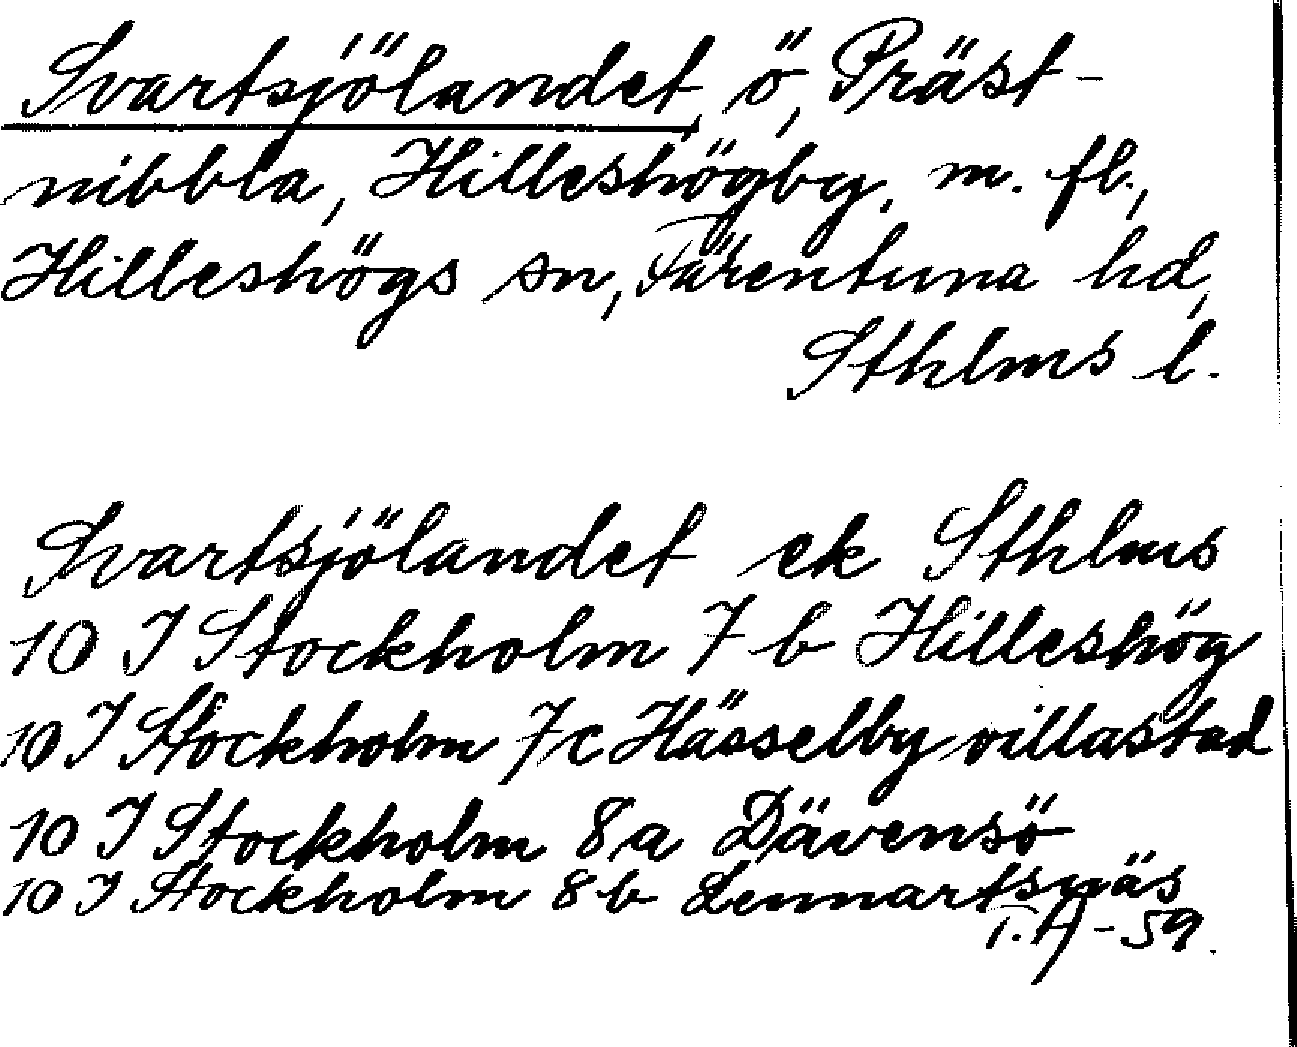 Svartsjölandet, ö, Präst-
nibbla, Hilleshögby, m. fl.,
Hilleshögs sn, Färentuna hd,
Sthlms l.
Svartsjölandet ek Sthlms
10 I Stockholm 7 b Hilleshög
10 I Stockholm 7c Hässelby villastad
10 I Stockholm 8a Dävensö
10 I Stockholm 8b Lennartsnäs
T.H -59.